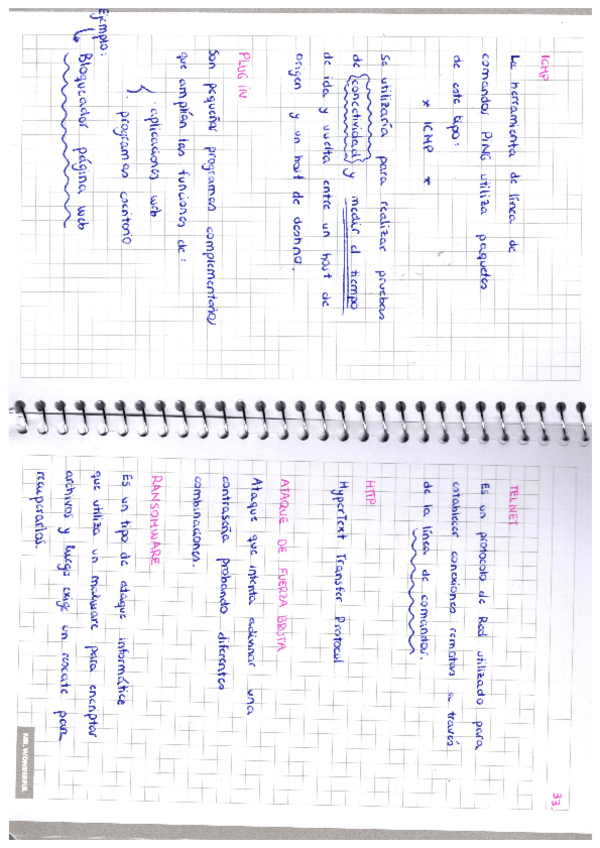 ICMP
La herramienta de línea de
comandos PING utiliza paquetes
de este tipo:
* ICMP *
Se utilizaría para realizar pruebas
de (conectividad) y medir el tiempo
de ida y vuelta entre un host de
origen y un host de destino.
PLUG IN
Son pequeños programas complementarios
que amplían las funciones de:
· aplicaciones web
· programas escritorio
Ejemplo:
Bloqueador página web
33.
TELNET
Es un protocolo de Red utilizado para
establecer conexiones remotas a través
de la línea de comandos.
HTTP
HyperText Transfer Protocol
ATAQUE DE FUERZA BRUTA
Ataque que intenta adivinar una
contraseña probando diferentes
combinaciones.
RANSOMWARE
Es un tipo de ataque informático
que utiliza un malware para encriptar
archivos y luego exige un rescate para
recuperarlos.
MR. WONDERFUL